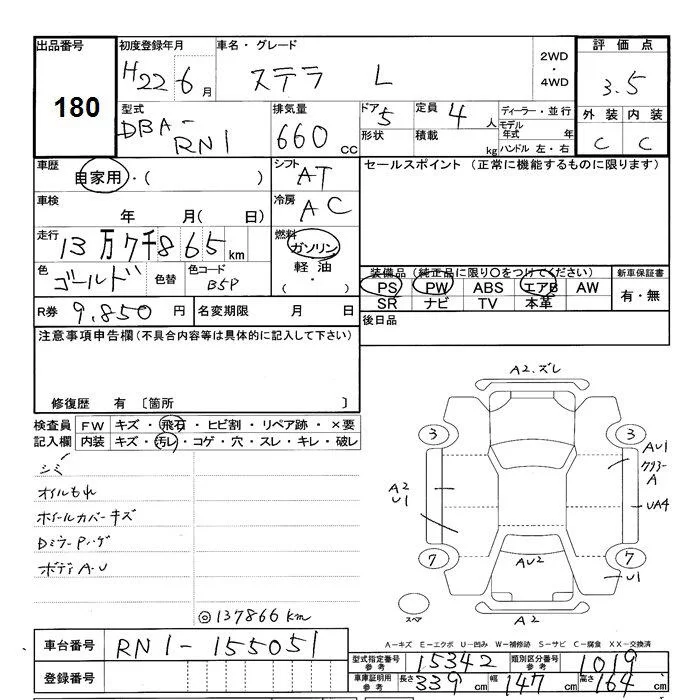 出品番号 初度登録年月 車名・グレード 2WD・4WD 評価点
180 H22 6月 ステラ L 3.5
型式 排気量 ドア 5 定員 4人 ディーラー・並行 外装 内装
DBA-RN1 660cc 形状 積載 kg モデル年式 年 ハンドル 左・右 C C
車歴 自家用・( ) シフト AT セールスポイント (正常に機能するものに限ります)
車検 年 月( 日) 冷房 AC
走行 13万7千865km 燃料 ガソリン
色 ゴールド 色替 色コード B5P 軽油 ( ・ ) 装備品 (純正品に限り○をつけてください) 新車保証書
PS PW ABS エアB AW 有・無
R券 9.850円 名変期限 月 日 SR ナビ TV 本革
注意事項申告欄(不具合内容等は具体的に記入して下さい) 後日品
修復歴 有 〔箇所 〕
検査員記入欄 FW キズ・飛石・ヒビ割・リペア跡・×要
内装 キズ・汚レ・コゲ・穴・スレ・キレ・破レ
シミ
オイルもれ
ホイールカバーキズ
Dミラー
ボディA.U
◎137866km
A2.ズレ
3 3
AU1
A
A2
U1
UA4
7 AU2 7
U1
スペア A2
A-キズ E-エクボ U-凹み W-補修跡 S-サビ C-腐食 XX-交換済
車台番号 RN1-155051 型式指定番号 参考 15342 類別区分番号 参考 1019
登録番号 車庫証明用 参考 長さ 339cm 幅 147cm 高さ 164cm